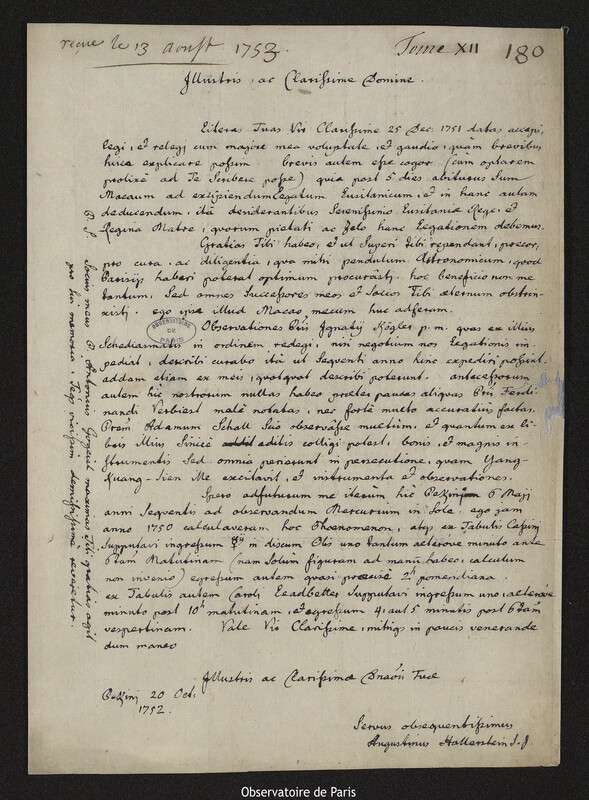 reçue le 13 aoust 1753.
Tome XII 180
Illustris ac Clarissime Domine.
Literas Tuas Vir Clarissime 25 Dec: 1751 datas accepi,
legi, et relegi cum majore mea voluptate, et gaudio, quàm brevibus
hisce explicare possum. brevis autem esse cogor (cùm optarem
prolixè ad Te Scribere posse) quia post 5 dies abiturus Sum
Macaum ad excipiendum Legatum Lusitanicum, et in hanc aulam
deducendum, ità desiderantibus Serenissimo Lusitaniæ Rege, et
Regina Matre, quorum pietati ac Zelo hanc Legationem debemus.
Gratias Tibi habeo, et ut Superi Tibi rependant, precor,
pro cura, ac diligentia, qua mihi pendulum Astronomicum, quod
Parisiis haberi poterat optimum procurasti. hoc beneficio non me
tantum, Sed omnes Successores meos et Socios Tibi æternum obstrin-
xisti. ego ipse illud Macao mecum huc adferam.
OBSERVATOIRE DE PARIS
Observationes Pris Ignatij Kögler p. m. quas ex illius
Schediasmatis in ordinem redegi, nisi negotium nos Legationis im-
pediat, describi curabo ità ut Sequenti anno hinc expediri possint.
addam etiam ex meis, quotquot describi poterunt. antecessorum
autem hic nostrorum nullas habeo præter paucas aliquas Pris Ferdi-
nandi Verbiest malè notatas, nec fortè multo accuratius factas.
Prem Adamum Schall Scio observasse multum, et quantum ex li-
bris illius Sinicè editis colligi potest, bonis, et magnis in-
strumentis Sed omnia perierunt in persecutione, quam Yang-
Kuang-Sien Me excitavit, et instrumenta et observationes.
Spero adfuturum me iterum hic Pekini 6 Maij
anni Sequentis ad observandum Mercurium in Sole. ego jam
anno 1750 calculaveram hoc Phœnomenon, atque ex Tabulis Cassini
Supputavi ingressum ☿ij in discum Olis uno tantum alterove minuto ante
6tam Matutinam (nam Solùm figuram ad manum habeo, calculum
non invenio) egressum autem quasi præcisè 2â pomeridiana.
ex Tabulis autem Caroli Leadbetter Supputavi ingressum uno, alterove
minuto post 10m matutinam, et egressum 4, aut 5 minutis post 6tam
vespertinam. Vale Vir Clarissime, mihique in paucis venerande
dum maneo
Illustris ac Clarissimæ Dnaõis Tuæ
Pekini 20 Oct:
1752.
Servus obsequentissimus
Augustinus Hallerstein S. J.
P. S. Socius meus P. Antonius Gogeisl maximas Tibi gratias agit
pro sui memoria, Teque vicissim demississimè reveretur.
Observatoire de Paris